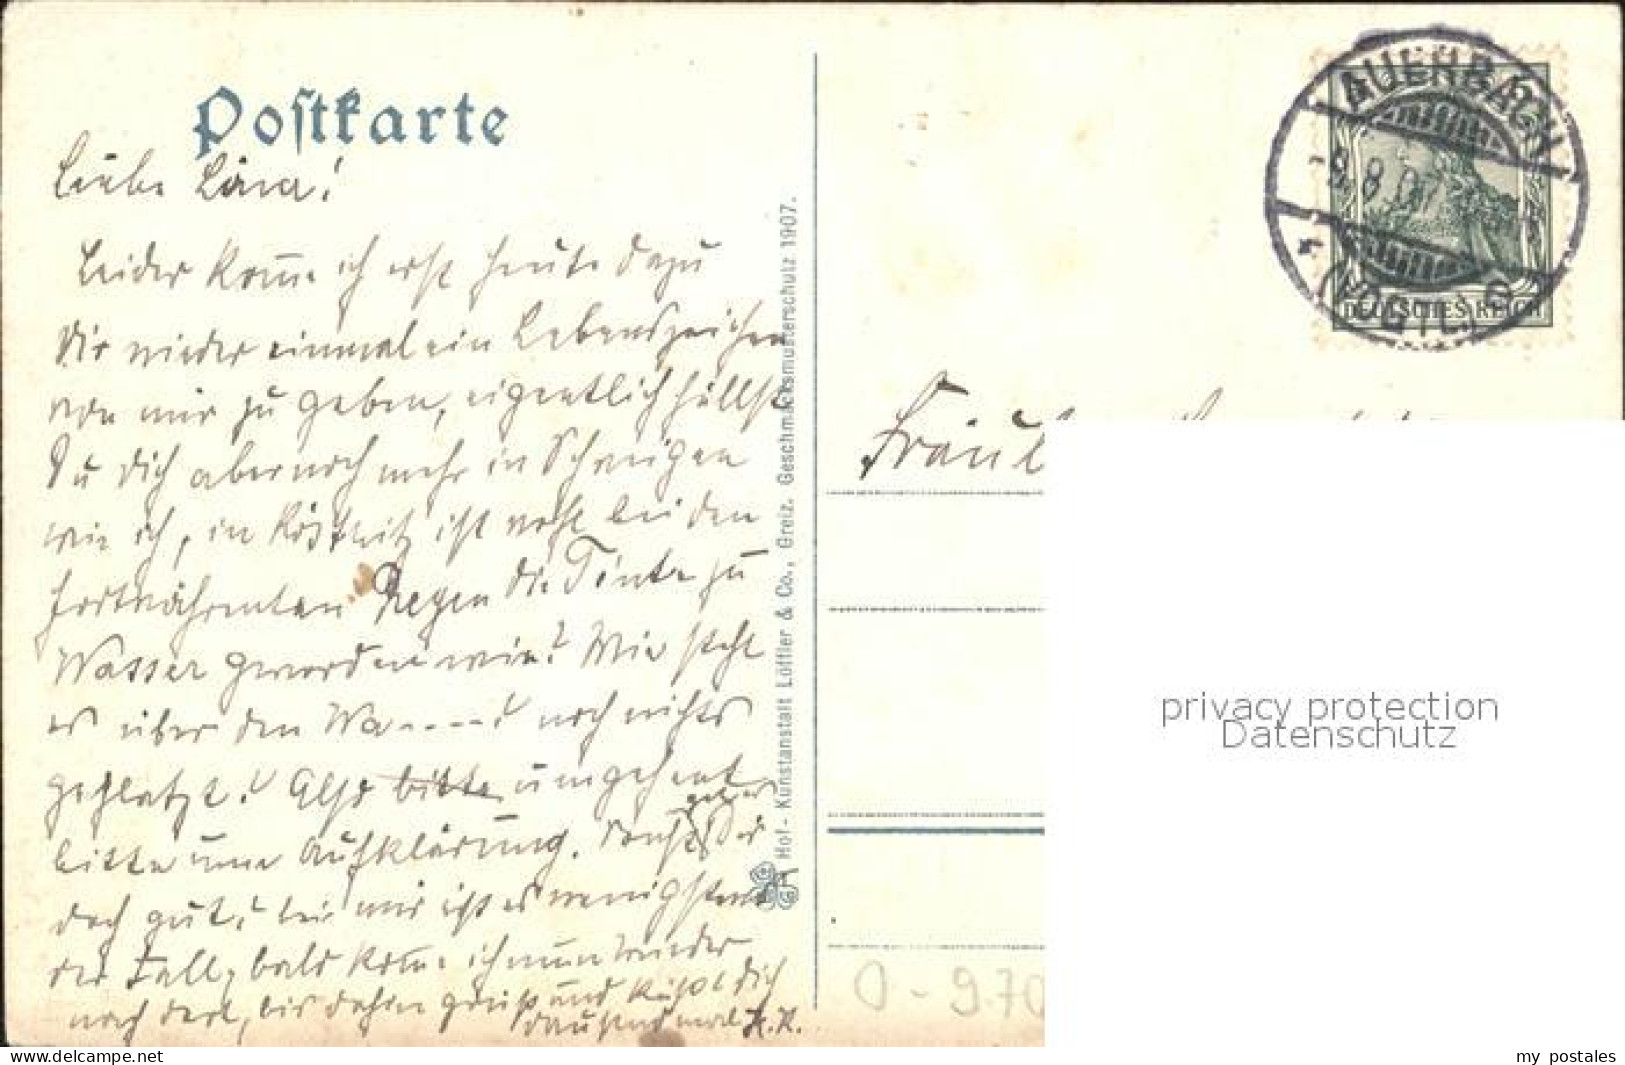 Postkarte
Liebe Lina!
Leider kom̅e ich erst heute dazu
Dir wieder einmal ein Lebenszeichen
von mir zu geben, eigentlich hüllst
Du Dich aber noch mehr in Schweigen
wie ich, in Köstritz ist wohl bei den
fortwährenten Regen die Tinte zu
Wasser geworden wie? Wie steht
es über den Wa----! noch nichts
geplatzt! Also bitte umgehent
bitte um Aufklärung. Sonst geht es Dir
doch gut, bei mir ist es wenigstens
der Fall, bald kom̅e ich nun wieder
nach dort, bis dahin grüßt und küßt Dich
tausend mal K.R.
Hof-Kunstanstalt Löffler & Co., Greiz. Geschmacksmusterschutz 1907.
AUERBACH
-9.8.07
* (VOGTL.)
DEUTSCHES REICH
Fräul
0-970
privacy protection
Datenschutz
https://www.ansichtskarten-center.de/
my postales